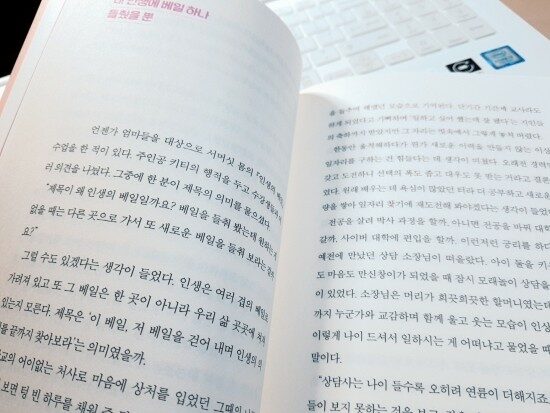 내 인생에 베일 하나
들췄을 뿐
언젠가 엄마들을 대상으로 서머싯 몸의 『인생의 베일』
수업을 한 적이 있다. 주인공 키티의 행적을 두고 수강생들과 여
러 의견을 나눴다. 그중에 한 분이 제목의 의미를 물으셨다.
"제목이 왜 인생의 베일일까요? 베일을 들춰 봤는데 원하는 게
없을 때는 다른 곳으로 가서 또 새로운 베일을 들춰 보라는 걸까
요?"
그럴 수도 있겠다는 생각이 들었다. 인생은 여러 겹의 베일로
가려져 있고 또 그 베일은 한 곳이 아니라 우리 삶 곳곳에 쳐져
있는지 모른다. 제목은 '이 베일, 저 베일을 걷어 내며 인생의 의
를 끝까지 찾아보라'는 의미였을까.
교의 어이없는 처사로 마음에 상처를 입었던 그때의 나
보면 텅 빈 하루를 채워 준
을 늦추며 해맸던 모습으로 기억된다. 단기간 기간제 교사라도
하게 되었다고 기뻐하며 '일하고 싶어 했는데 잘 됐다'는 지인들
의 축하까지 받았지만 그 자리는 망측해서 그렇게 놓쳐 버렸다.
한동안 울적해하다가 뭔가 새로운 이력을 만들지 않는 이상
일자리를 구하는 건 힘들다는 데 생각이 미쳤다. 오래전 경력
갖고 도전하니 선택의 폭도 좁고 대우도 못 받는 거라고 결
었다. 원래 배우는 데 욕심이 많았던 터라 더 공부하고 새로운
량을 쌓아 일자리 찾기에 재도전해 봐야겠다는 생각이 들었
전공을 살려 박사 과정을 할까, 아니면 전공을 바꿔 대학
갈까, 사이버 대학에 편입을 할까, 이런저런 궁리를 하다
예전에 만났던 상담 소장님이 떠올랐다. 아이 둘을 키
도 마음도 만신창이가 되었을 때 잠시 모래놀이 상담을
이 있었다. 소장님은 머리가 희끗희끗한 할머니였는데
까지 누군가와 교감하며 함께 울고 웃는 모습이 인상
이렇게 나이 드셔서 일하시는 게 어떠냐고 물었을 때
말이다.
"상담사는 나이 들수록 오히려 연륜이 더해지죠.
들이 보지 못하는 것도